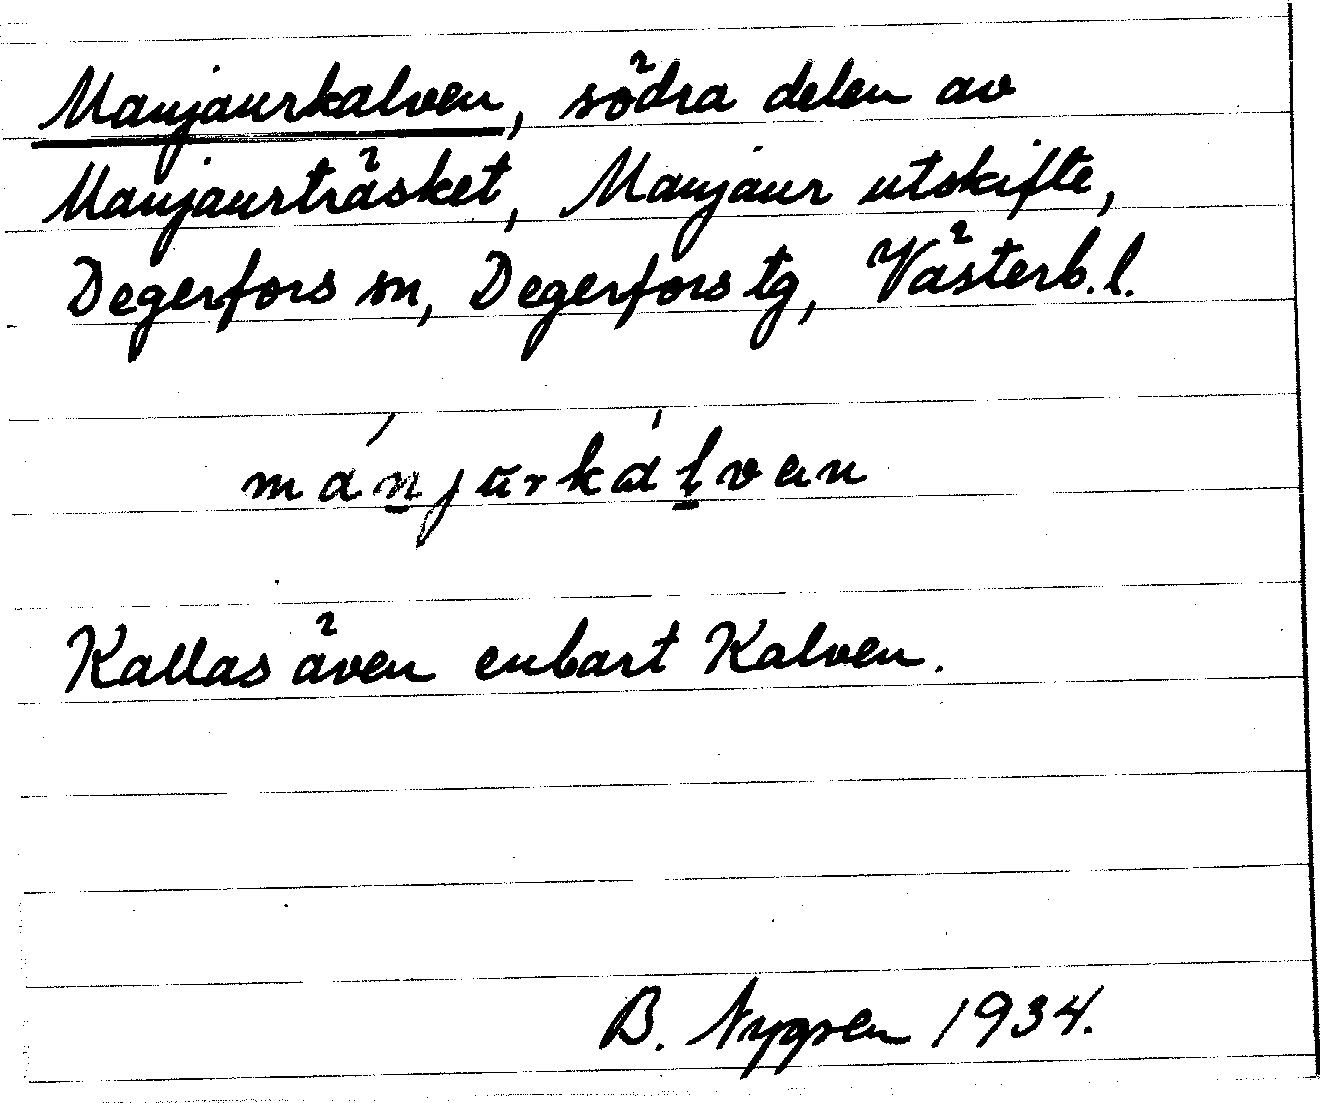 Manjaurkalven, södra delen av
Manjaurträsket, Manjaur utskifte,
Degerfors sn, Degerfors tg, Västerb.l.
mánjūrkálvan
Kallas även enbart Kalven.
B. Nygren 1934.